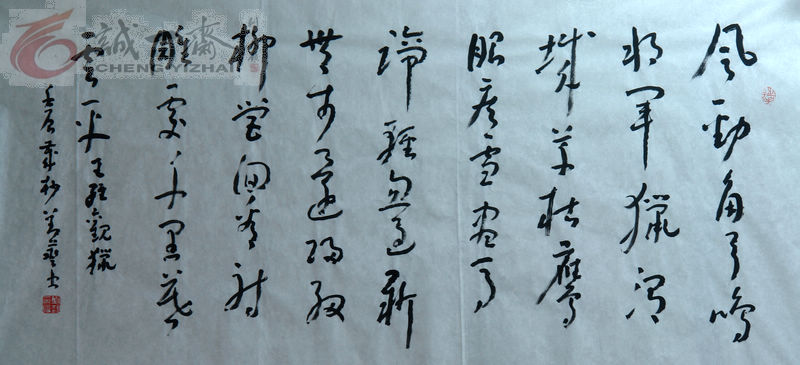 誠一齋
CHENGYIZHAI
風勁角弓鳴
將軍獵渭
城草枯鷹
眼疾雪盡馬
蹄輕忽過新
豐市還歸細
柳營回看射
雕處千里暮
雲平 王維觀獵
壬辰歲杪